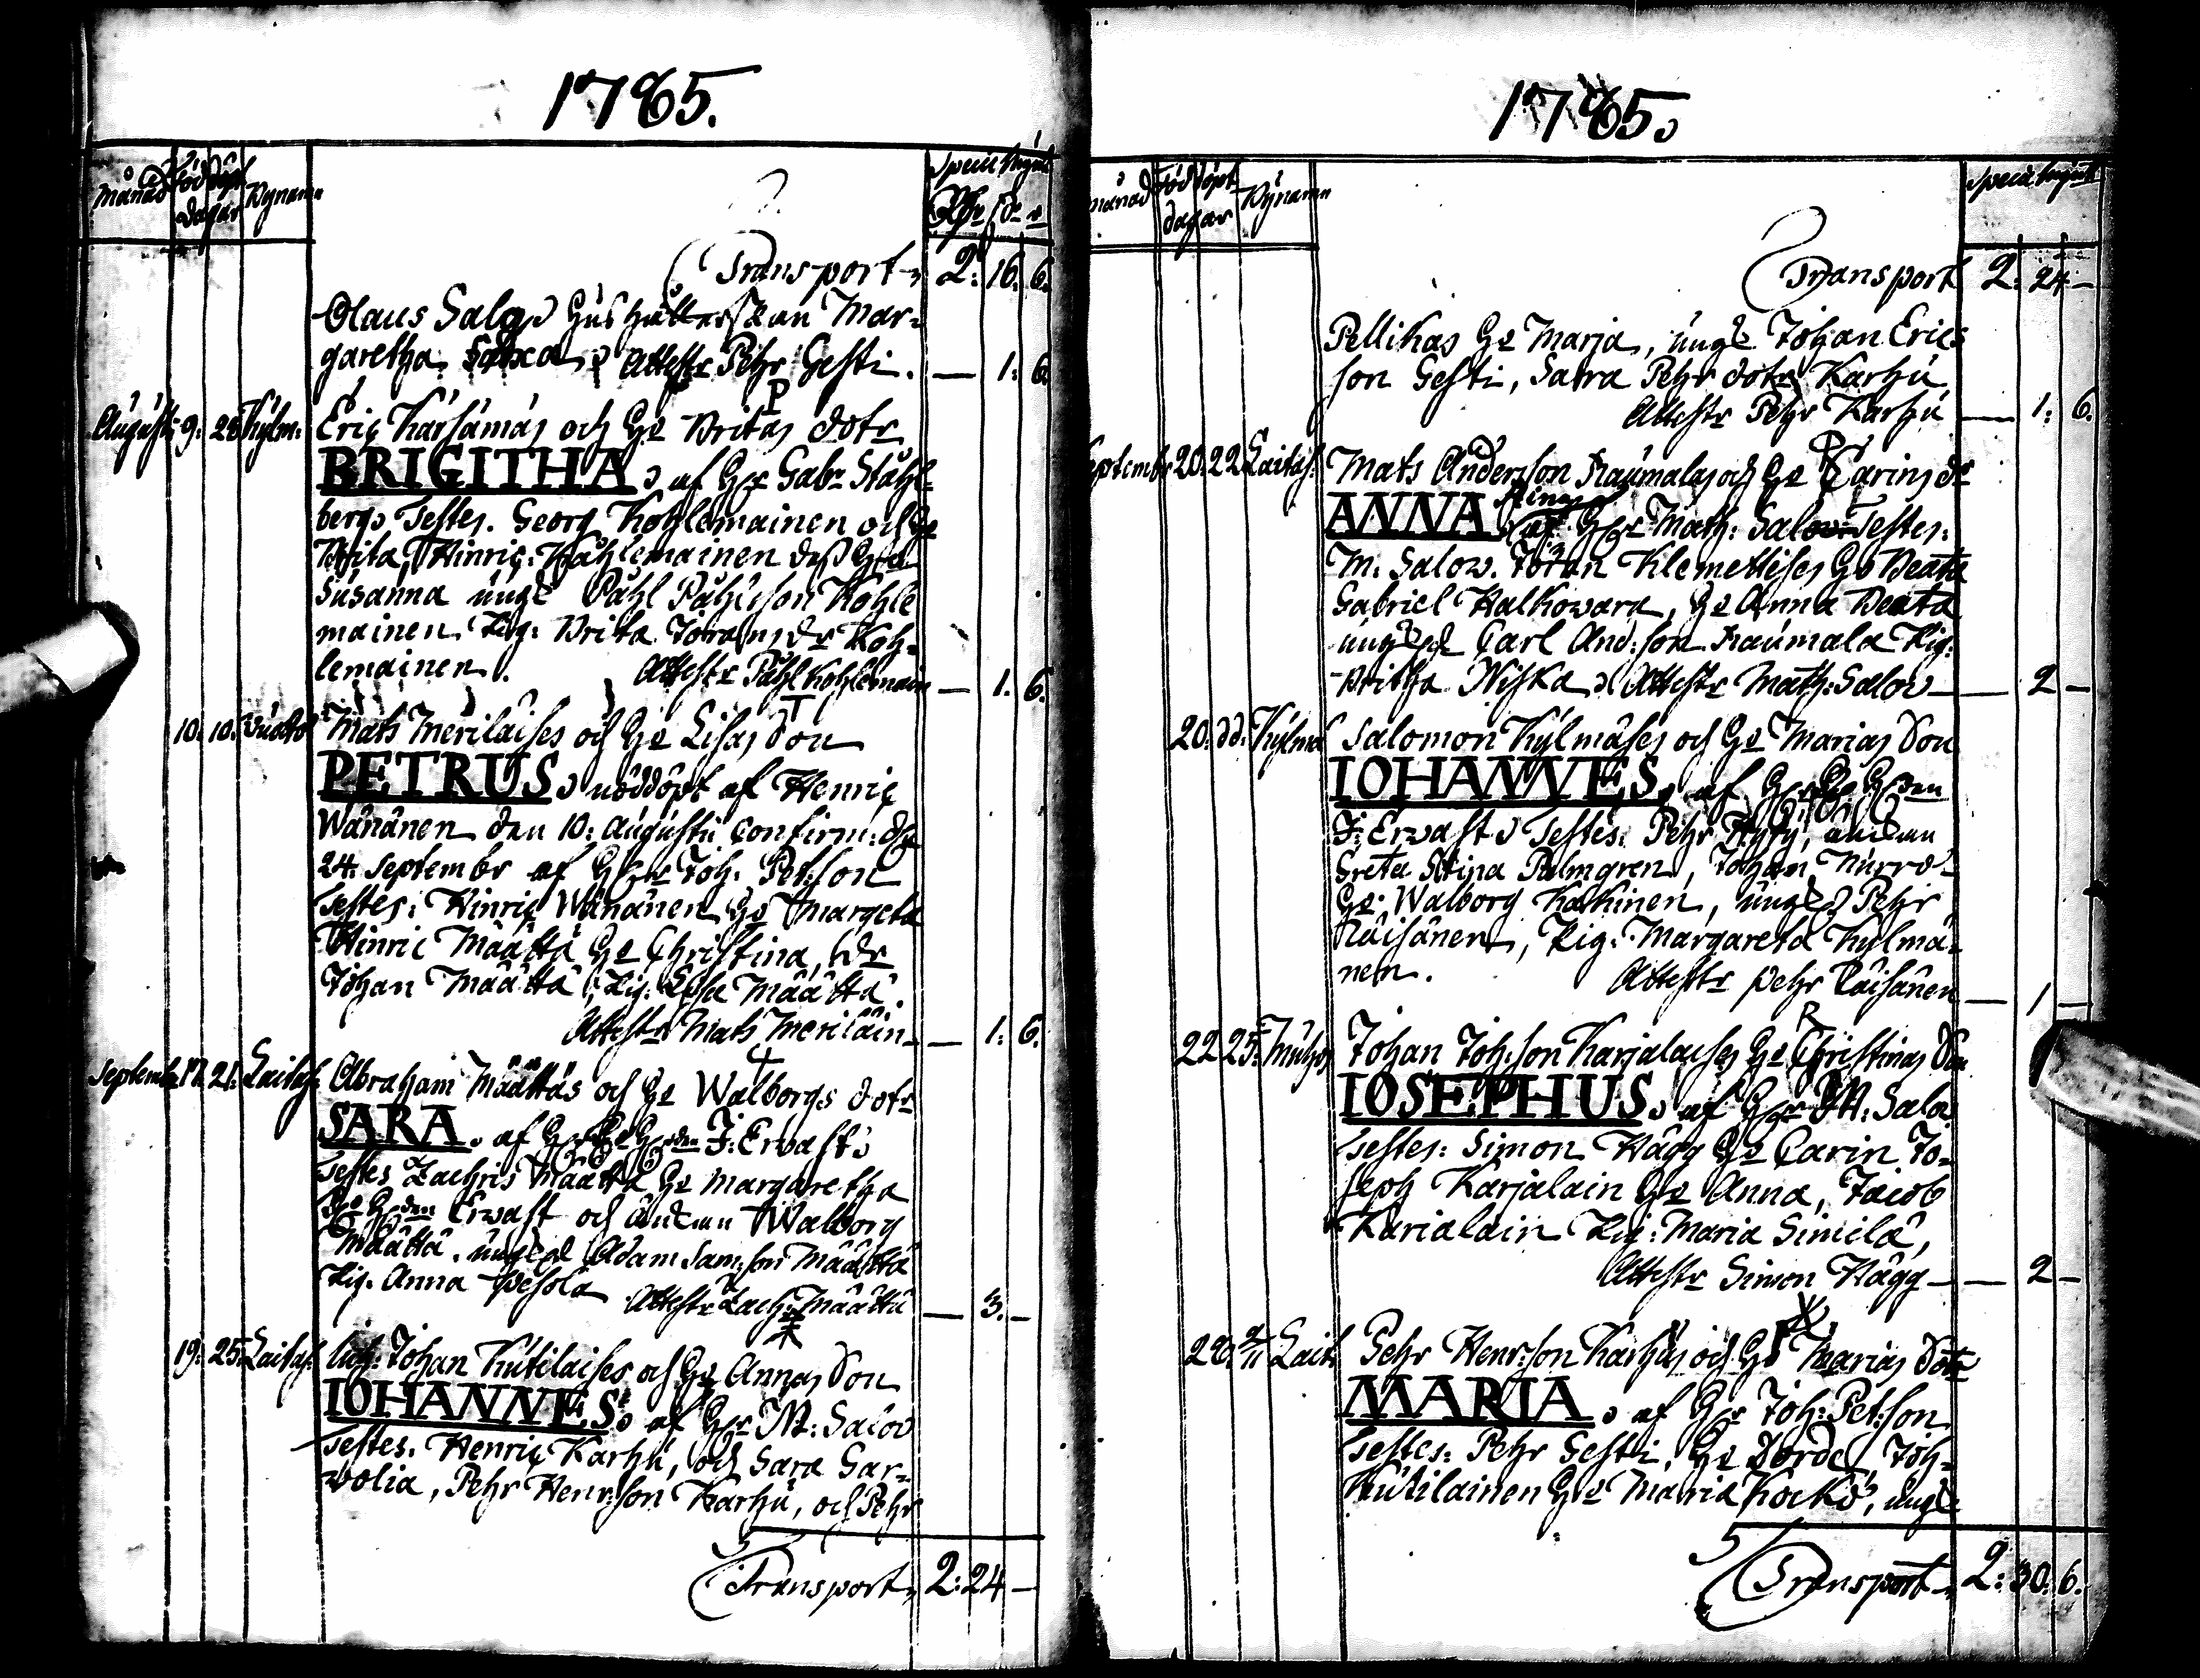 1785.
Månad Född Döpt dagar Bynamn
Specie Ringmt
Rdr sk r
Transport 2: 16. 6.
Olaus Salov Hushållerskan Mar-
garetha Attestr Pehr Gesti. — 1: 6.
Augusti 9: 28 Kylm: Eric Karsämäs och H:s Britas dotr
BRIGITHA, af Hr Gabr Ståhl-
berg, Testes. Georg Kohlemainen och H:s
Brita, Hinric Kåhlemainen dess H:u
Susanna ungk Påhl Påhlsson Kohle
mainen. Pig: Brita Jorans dr Koh-
lemainen. Attestr Påhl Kohlemain — 1. 6.
10. 10. Vuotto Mats Meriläises och H:s Lisas Son
PETRUS, nöddöpt af Henric
Wänänen den 10: Augusti Confirm: d.
24. Septembr af Hr Joh: Pet:son
Testes: Hinric Wänänen H:s Margeta
Hinric Määttä H:s Christina, dr
Johan Määttä, Pig: Lisa Määttä.
Attestr Mats Meriläin — 1: 6.
Septembr 17. 21: Laitas: Abraham Määttäs och H:s Walborgs dotr
SARA, af J: Erwast,
Testes Zachris Määttä H:s Margaretha
Erwast och änkan Walborg
Määttä. ungk Adam Sam:son Määttä
Pig. Anna Pesola Attestr Zach: Määttä — 3. —
19: 25. Laitas: Johan Kutilaises och H:s Annas Son
IOHANNES, af Hr M: Salov
Testes. Henric Karhu, och Sara Sar-
wolia, Pehr Henr:son Karhu, och Pehr
Transport 2: 24 —
1785.
Månad Född Döpt dagar Bynamn
Specie Ringmt
Transport 2: 24 —
Pellikas H:s Marja, ungk Johan Erics
son Gesti, Sara Pehr dotr Karhu
Attestr Pehr Karhu — 1: 6.
Septembr 20. 22 Laitas: Mats Andersson Raumalas och H:s Carins dr
ANNA af Hr Math: Salov Testes:
M. Salov. Joran Klemettises H:s Beata
Gabriel Halkowara, H:s Anna Beata
ungk Carl And:son Raumala Pig:
Britha Niska, Attestr Math: Salov — 2 —
20: dd: Kylmä Salomon Kylmäses och H:s Marias Son
IOHANNES, af
J: Erwast, Testes: Pehr änkan
Greta Stina Palmgren, Johan
H:s Walborg Karhinen, ungk Pehr
Räisänen, Pig: Margareta Kylmä-
nen. Attestr Pehr Räisänen — 1 —
22 25: Muhos Johan Joh:son Karjalaises H:s Christinas Son
IOSEPHUS, af Hr M: Salov
Testes: Simon Hägg H:s Carin Jo-
seph Karjalain H:s Anna, Jacob
Karialain Pig: Maria Similä,
Attestr Simon Hägg — 2 —
Lait: Pehr Henr:son Karhus och H:s Marias Dotr
MARIA, af Hr Joh: Pet:son
Testes: Pehr Gesti, H:s Dorde, Joh-
Kutilainen H:s Maria Kockå, ungk
Transport 2: 30: 6.